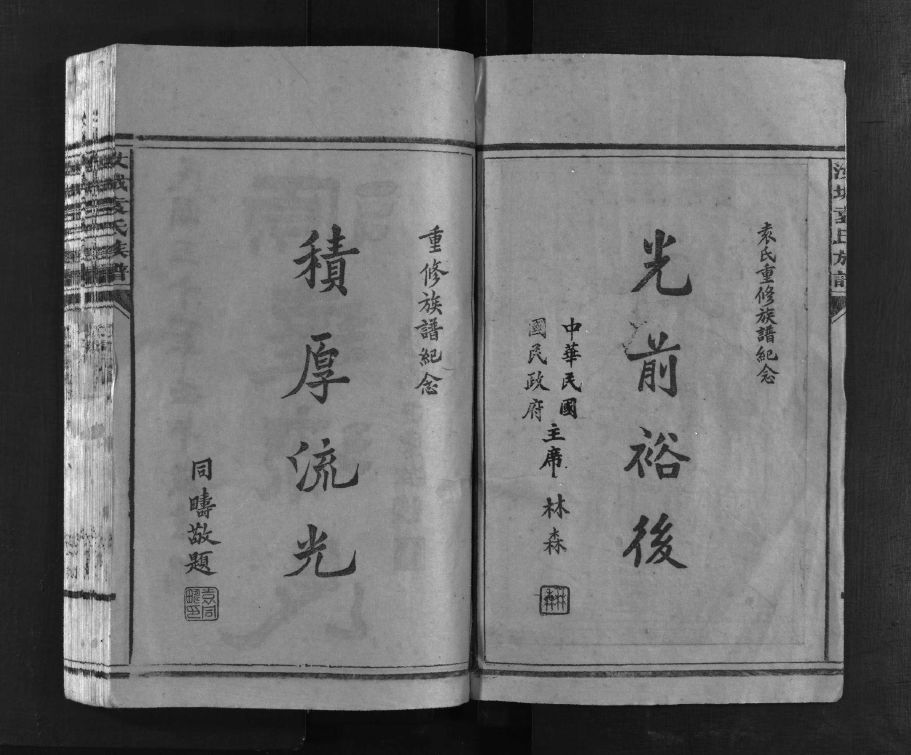 袁氏重修族譜紀念
光前裕後
中華民國
國民政府
主席林森
重修族譜紀念
積厚流光
同疇敬題
袁同疇印
袁氏族譜